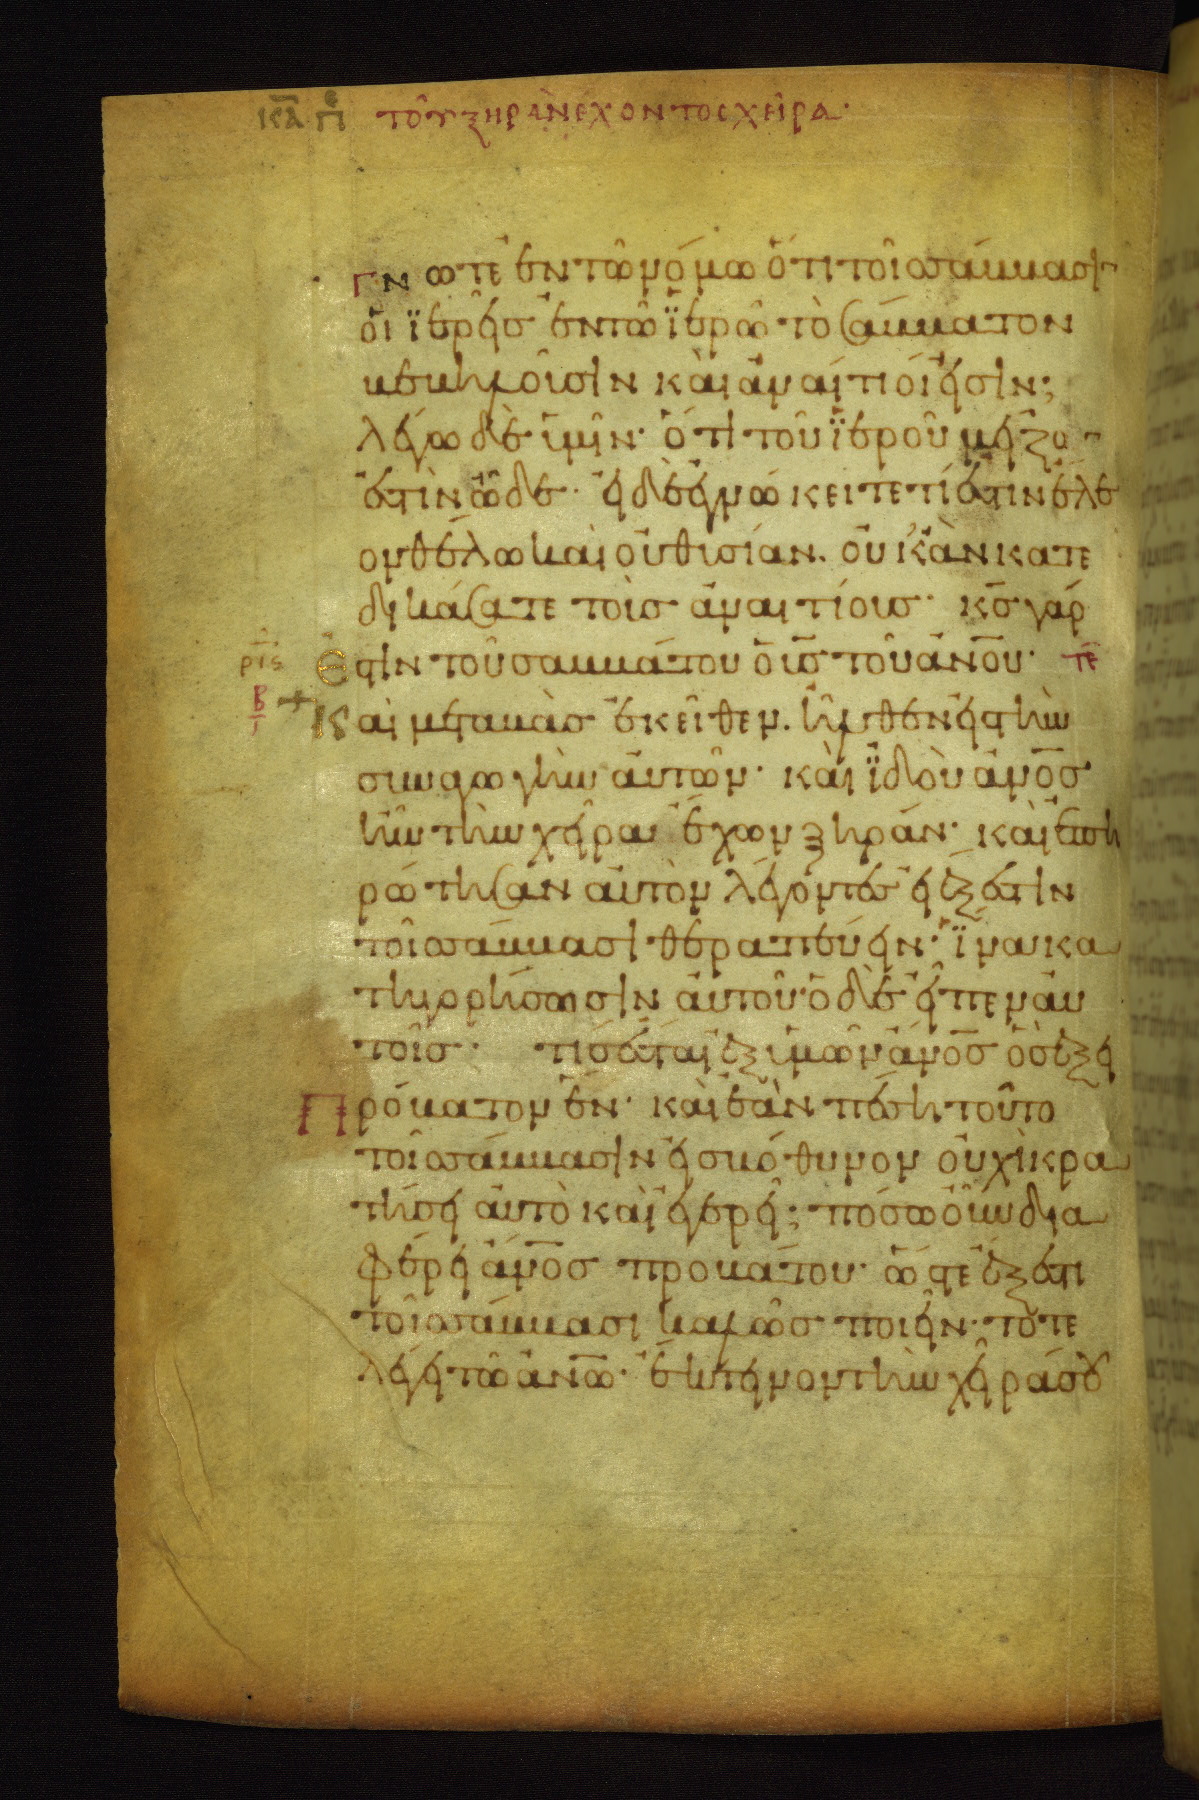 κα πε τοῦ ξηρὰν ἔχοντος χεῖρα·
γνωτε ἐν τῶ νόμω ὅτι τοῖς σάββασιν
οἱ ἱερεῖς ἐν τῶ ἱερῶ τὸ σάββατον
βεβηλοῦσιν καὶ ἀναίτιοί εἰσιν;
λέγω δὲ ὑμῖν· ὅτι τοῦ ἱεροῦ μεῖζον
ἐστὶν ὧδε· εἰ δὲ ἐγνώκειτε τί ἐστιν ἔλε
ον θέλω καὶ οὐ θυσίαν. οὐκ ἂν κατε
δικάσατε τοὺς ἀναιτίους· κς γάρ
ρις ἐστιν τοῦ σαββάτου ὁ υς τοῦ ανου· τε
Β Ι + Καὶ μεταβὰς ἐκεῖθεν. ἦλθεν εἰς τὴν
συναγωγὴν αὐτῶν· καὶ ἰδοὺ ανος
ἦν τὴν χεῖρα ἔχων ξηράν· καὶ ἐπη
ρώτησαν αὐτὸν λέγοντες εἰ ἔξεστιν
τοῖς σάββασι θεραπεύειν· ἵνα κα
τηγορήσωσιν αὐτοῦ· ὁ δὲ εἶπεν αὐ
τοῖς· τίς ἔσται ἐξ ὑμῶν ανος ὃς ἕξει
Πρόβατον ἕν· καὶ ἐὰν πέση τοῦτο
τοῖς σάββασιν εἰς βόθυνον οὐχὶ κρα
τήσει αὐτὸ καὶ ἐγερεῖ; πόσω οὖν δια
φέρει ανος προβάτου· ὥστε ἔξεστι
τοῖς σάββασι καλῶς ποιεῖν· τότε
λέγει τῶ ανω· ἔκτεινον τὴν χεῖρά σου